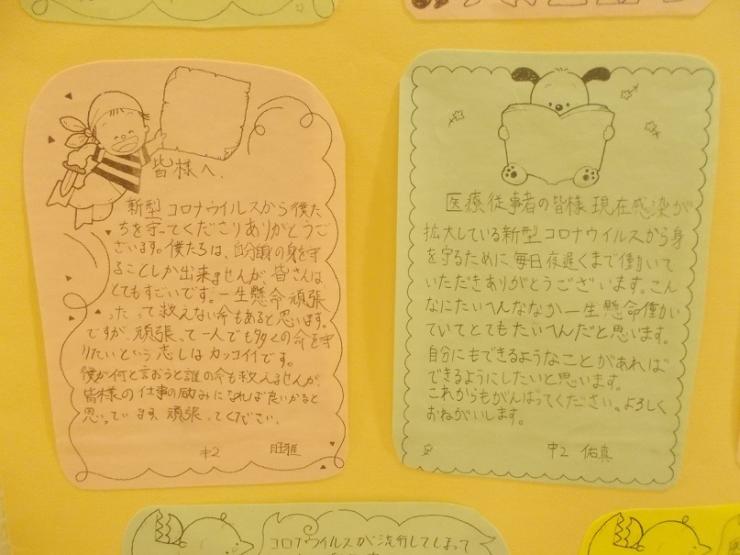 皆様へ
新型コロナウイルスから僕た
ちを守ってくださりありがとうご
ざいます。僕たちは、自分の身を守
ることしか出来ませんが皆さんは
とてもすごいです。一生懸命頑張
ったって救えない命もあると思います。
ですが、頑張って一人でも多くの命を守
りたいという志しはカッコイイです。
僕が何と言おうと誰の命も救えませんが、
皆様の仕事の励みになれば良いかなと
思っています。頑張ってください。
中2
医療従事者の皆様 現在感染が
拡大している新型コロナウイルスから身
を守るために毎日夜遅くまで働いて
いただきありがとうございます。こん
なにたいへんななか一生懸命働い
ていてとてもたいへんだと思います。
自分にもできるようなことがあれば
できるようにしたいと思います。
これからもがんばってください。よろしく
おねがいします。
中2 佑真
コロナウイルスが流行してしまって